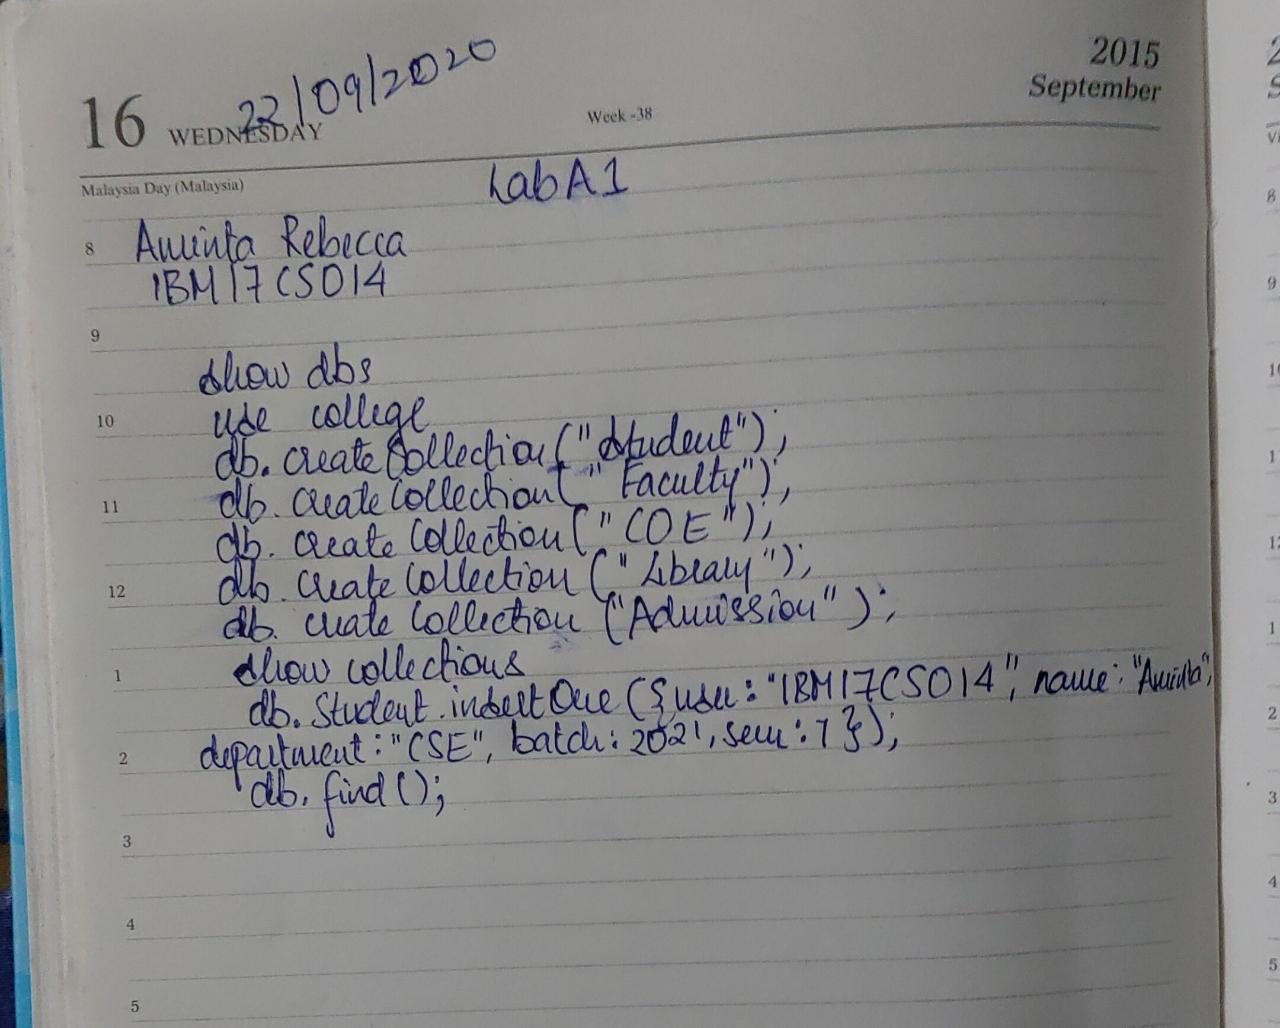 2015
September
22/09/2020
16 WEDNESDAY
Week -38
Malaysia Day (Malaysia)
Lab A1
8 Aminta Rebecca
1BM17CS014
9
show dbs
10 use college
db.createCollection("Student");
11 db.createCollection("Faculty");
db.createCollection("COE");
12 db.createCollection("Library");
db.createCollection("Admission");
1 show collections
db.Student.insertOne({usn:"1BM17CS014", name:"Aminta",
2 department:"CSE", batch:2021, sem:7});
db.find();
3
4
5
8
9
10
11
12
1
2
3
4
5